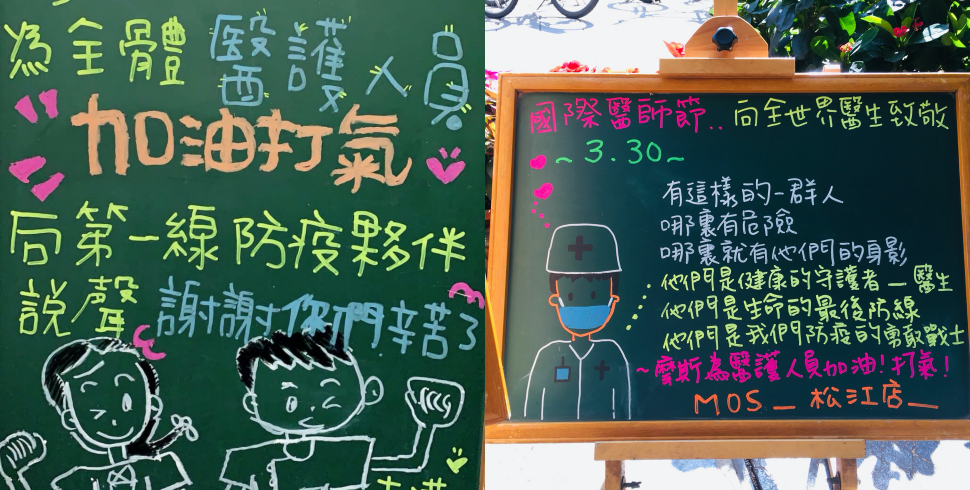 為全體醫護人員
加油打氣
向第一線防疫夥伴
說聲謝謝你們辛苦了
國際醫師節..向全世界醫生致敬
~3.30~
有這樣的一群人
哪裏有危險
哪裏就有他們的身影
他們是健康的守護者—醫生
他們是生命的最後防線
他們是我們防疫的勇敢戰士
~摩斯為醫護人員加油!打氣!
MOS_松江店_